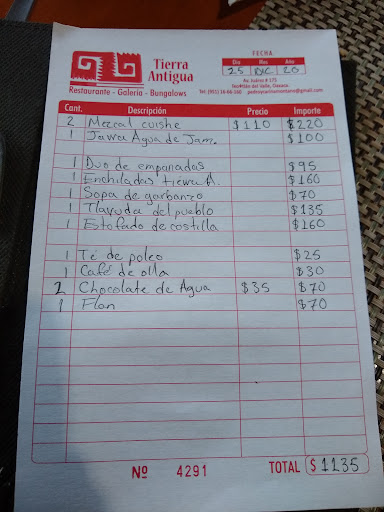 Tierra Antigua
Restaurante - Galería - Bungalows
FECHA
Día Mes Año
25 DIC 20
Av. Juárez # 175
Teotitlán del Valle, Oaxaca.
Cant. Descripción Precio Importe
2 Mezcal cuishe $110 $220
1 Jarra Agua de Jam. $100
1 Duo de empanadas $95
1 Enchiladas tierra A. $160
1 Sopa de garbanzo $70
1 Tlayuda del pueblo $135
1 Estofado de costilla $160
1 Té de poleo $25
1 Café de olla $30
2 Chocolate de Agua $35 $70
1 Flan $70
Nº 4291 TOTAL $1135